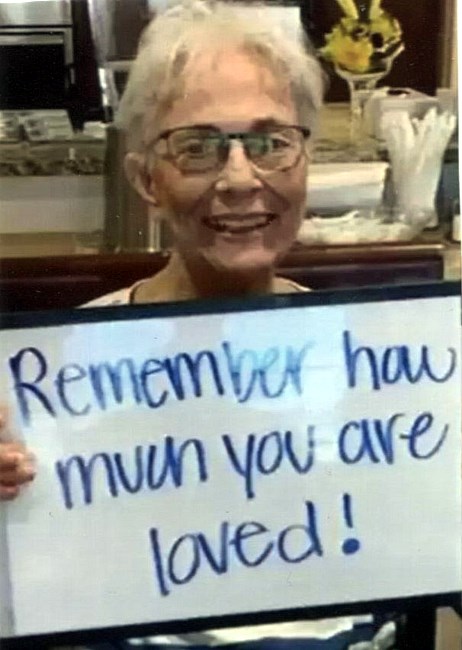 Remember how
much you are
loved!